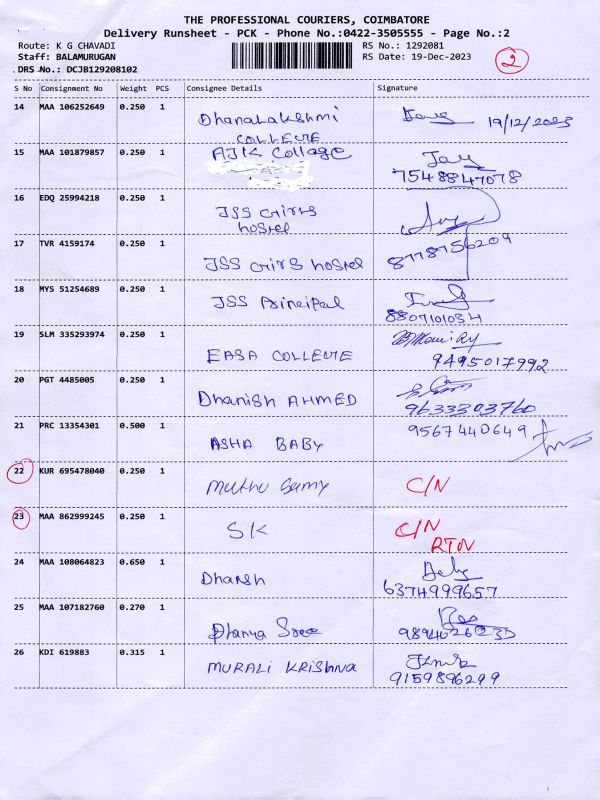 THE PROFESSIONAL COURIERS, COIMBATORE
Delivery Runsheet - PCK - Phone No.:0422-3505555 - Page No.:2
Route: K G CHAVADI RS No.: 1292081
Staff: BALAMURUGAN RS Date: 19-Dec-2023
DRS No.: DCJB129208102 2
S No Consignment No Weight PCS Consignee Details Signature
14 MAA 106252649 0.250 1 Dhanalakshmi 19/12/2023
COLLEGE
15 MAA 101879857 0.250 1 AJK Collage
7548847078
16 EDQ 25994218 0.250 1 JSS Girls
hostel
17 TVR 4159174 0.250 1 JSS Girs hostel 8778756209
18 MYS 51254689 0.250 1 JSS Principal
8807101034
19 SLM 335293974 0.250 1 EASA COLLEGE 9495017992
20 PGT 4485005 0.250 1 Dhanish AHMED 9633303760
21 PRC 13354301 0.500 1 ASHA BABY 9567440649
22 KUR 695478040 0.250 1 Muthu Samy C/N
23 MAA 862999245 0.250 1 SK C/N
RTN
24 MAA 108064823 0.650 1 Dharsh
6374999657
25 MAA 107182760 0.270 1 Dhanya Sree
26 KDI 619883 0.315 1 MURALI KRISHNA
9159896299